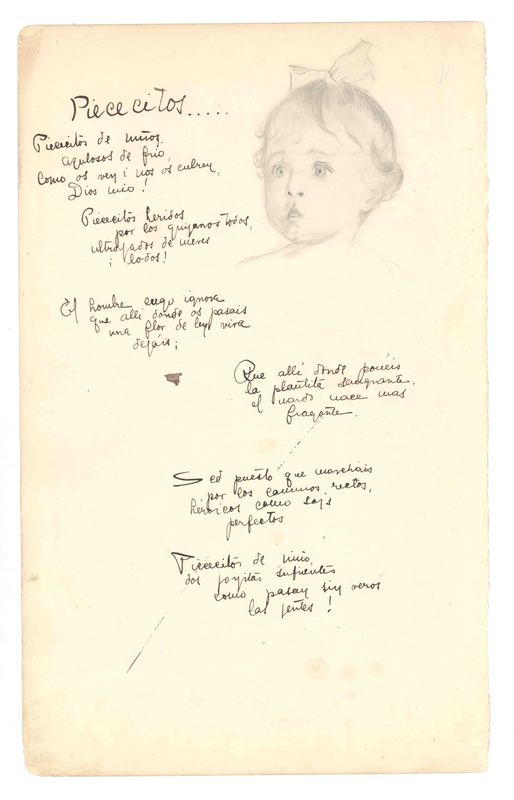 Piececitos.....
Piececitos de niños.
azulosos de frio,
Como os ven i nos os cubren,
Dios mio!
Piececitos heridos
por los guijarros todos,
ultrajados de nieves
i lodos!
El hombre ciego ignora
que alli donde os pasais
una flor de luz viva
dejáis;
Que allí donde ponéis
la plantita sangrante,
el nardo nace mas
fragante.
Sed puesto que marchais
por los caminos rectos,
heroicos como sois
perfectos
Piececitos de niño,
dos joyitas sufrientes
como pasan sin veros
las jentes!